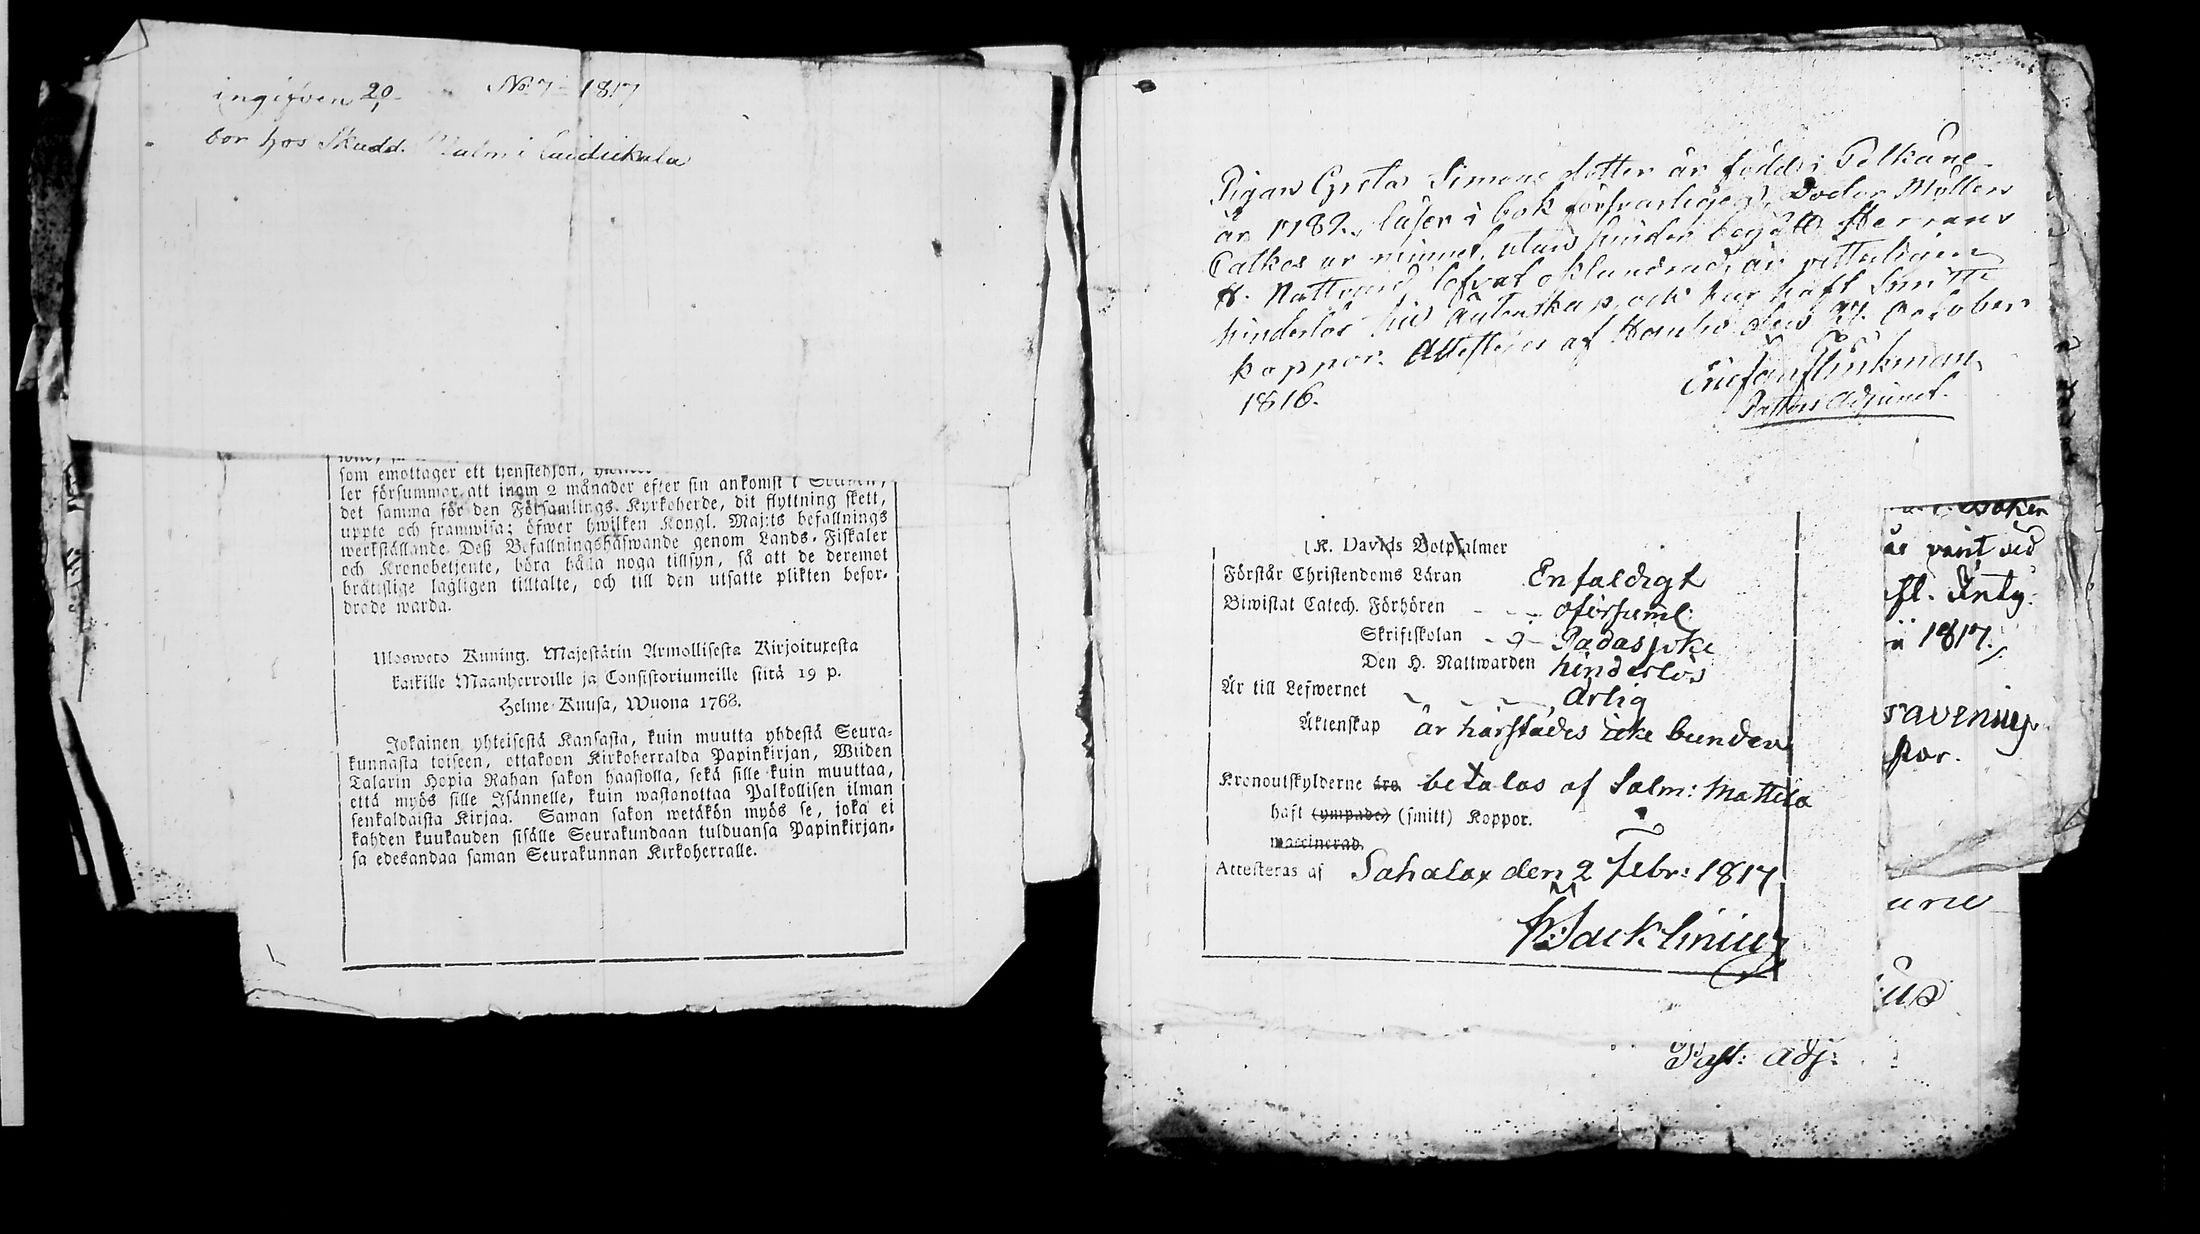 ingifven 20 No 7 - 1817
bor hos Skadd. Malm i
som emottager ett tjenstehjon,
ler försummar att inom 2 månader efter sin ankomst i
det samma för den Församlings Kyrkoherde, dit flyttning skett,
uppte och framwisa; öfwer hwilken Kongl. Maj:ts befallnings
werkställande Deß Befallningshafwande genom Lands-Fiskaler
och Kronobetjente, böra hålla noga tillsyn, så att de deremot
bråttslige lagligen tilltalte, och till den utsatte plikten befor-
drade warda.
Ulosweto Kuning. Majestätin Armollisesta Kirjoituxesta
kaikille Maanherroille ja Consistoriumeille siitä 19 p.
Helme-Kuusa, Wuona 1768.
Jokainen yhteisestä Kansasta, kuin muutta yhdestä Seura-
kunnasta toiseen, ottakoon Kirkoherralda Papinkirjan, Wiiden
Talarin Hopia Rahan sakon haastolla, sekä sille kuin muuttaa,
että myös sille Isännelle, kuin wastanottaa Palkollisen ilman
senkaldaista Kirjaa. Saman sakon wetäkön myös se, joka ei
kahden kuukauden sisälle Seurakundaan tulduansa Papinkirjan-
sa edesandaa saman Seurakunnan Kirkoherralle.
Pigan Greta Simons dotter är född i Pelkäne
år 1782, läser i bok försvarligen, Doctor Möllers
Catkes ur minnet, utan hinder begått Herrans
H. Nattvard, lefvat oklandrad, är vitterligen
hinderlös till Äktenskap, och har haft Smitt
koppor. Attesteras af Hauho den 27. October
1816.
Pastors Adjunct.
K. Davids Botpsalmer
Förstår Christendoms Läran Enfaldigt
Biwistat Catech. Förhören oförsuml:
Skriftskolan i Padasjoki
Den H. Nattwarden hinderlös
Är till Lefwernet Ärlig
Äktenskap är härstädes icke bunden
Kronoutskylderne äro betalas af Salm: Mattila
haft (ympade) (smitt) Koppor.
waccinerad.
Attesteras af Sahalax den 2 Febr: 1817
Soken
är vänt vid
1817.
por.
us
Past: Adj: